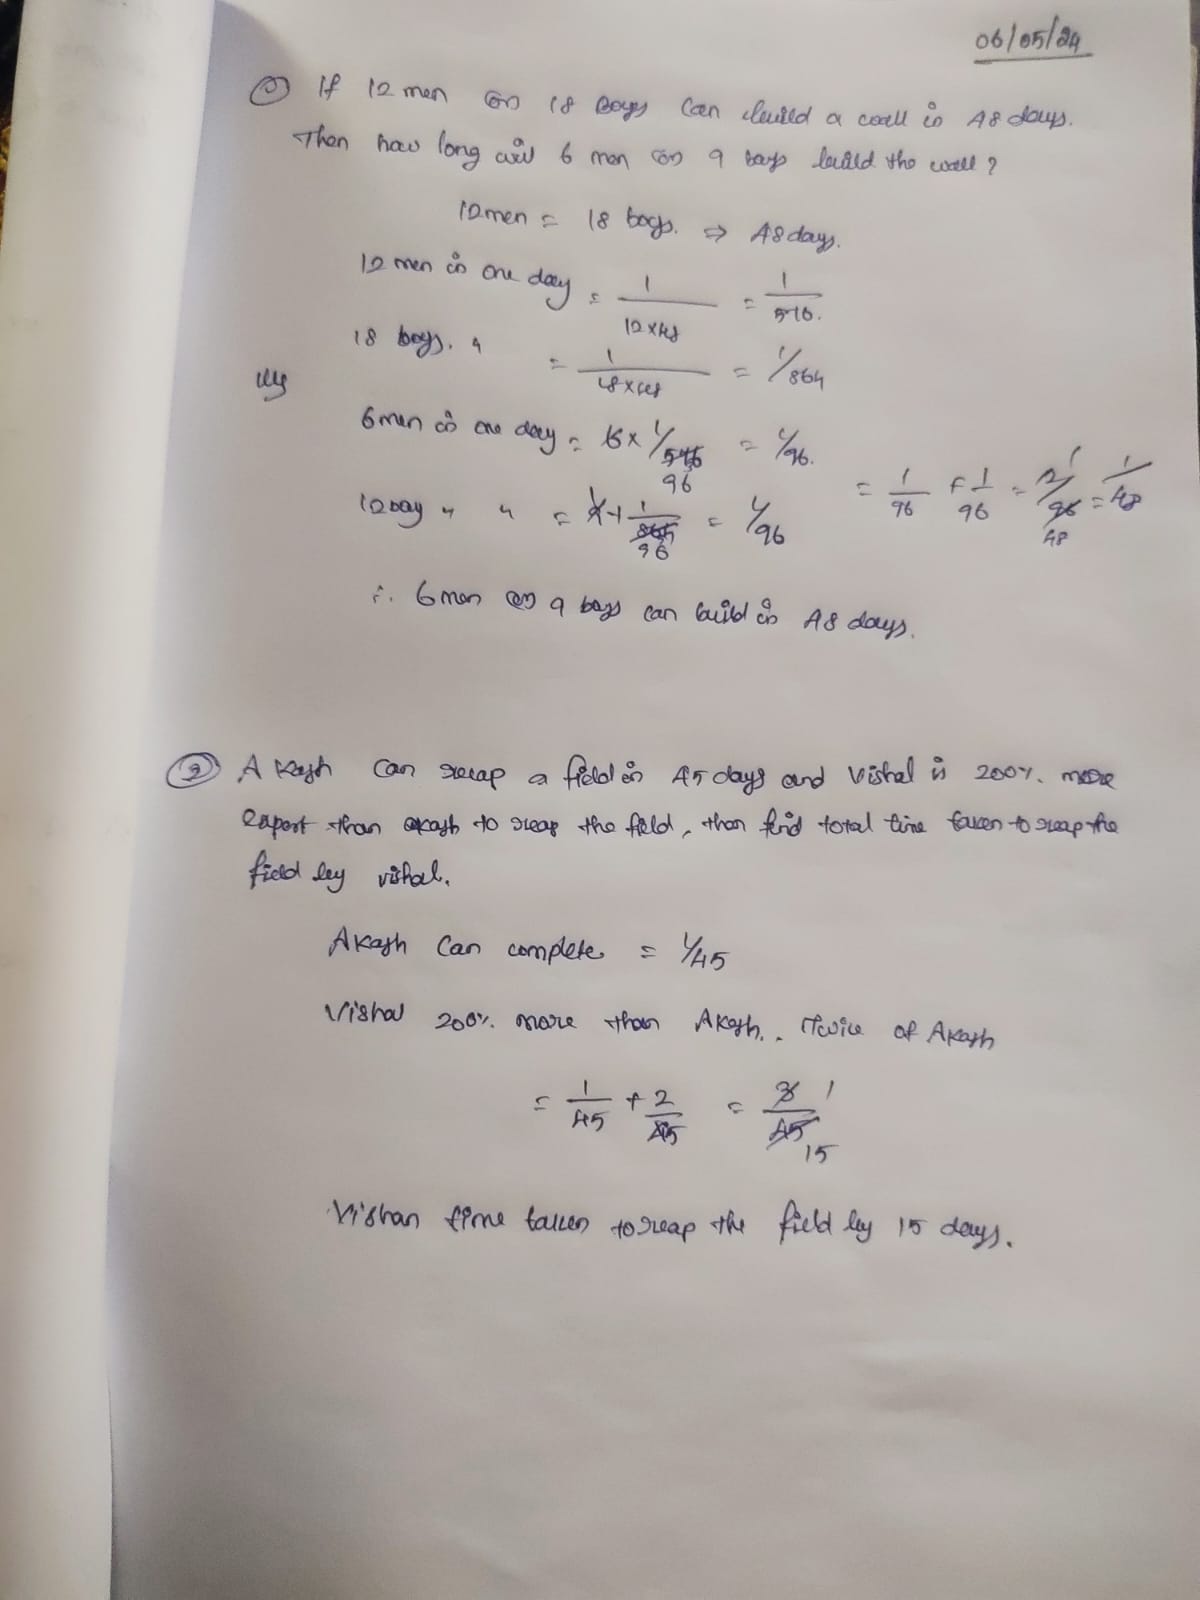 06/05/24
① If 12 men (or) 18 Boys Can build a wall in 48 days.
Then how long will 6 men (or) 9 boys build the wall?
12men = 18 boys. ⇒ 48days.
12 men in one day = 1/12×48 = 1/576.
18 boys. " = 1/18×48 = 1/864
lly
6men in one day = 6 × 1/576 96 = 1/96.
12 Boy " " = 1/864 96 = 1/96
= 1/96 + 1/96 = 2/96 1 48 = 1/48
∴ 6men (or) 9 boys can build in 48 days.
② Akash Can reap a field in 45 days and Vishal is 200% more
Expert than akash to reap the field, then find total time taken to reap the
field by vishal.
Akash Can complete = 1/45
Vishal 200% more than Akash. Twice of Akash
= 1/45 + 2/45 = 3/45 1 15
Vishan time taken to reap the field by 15 days.